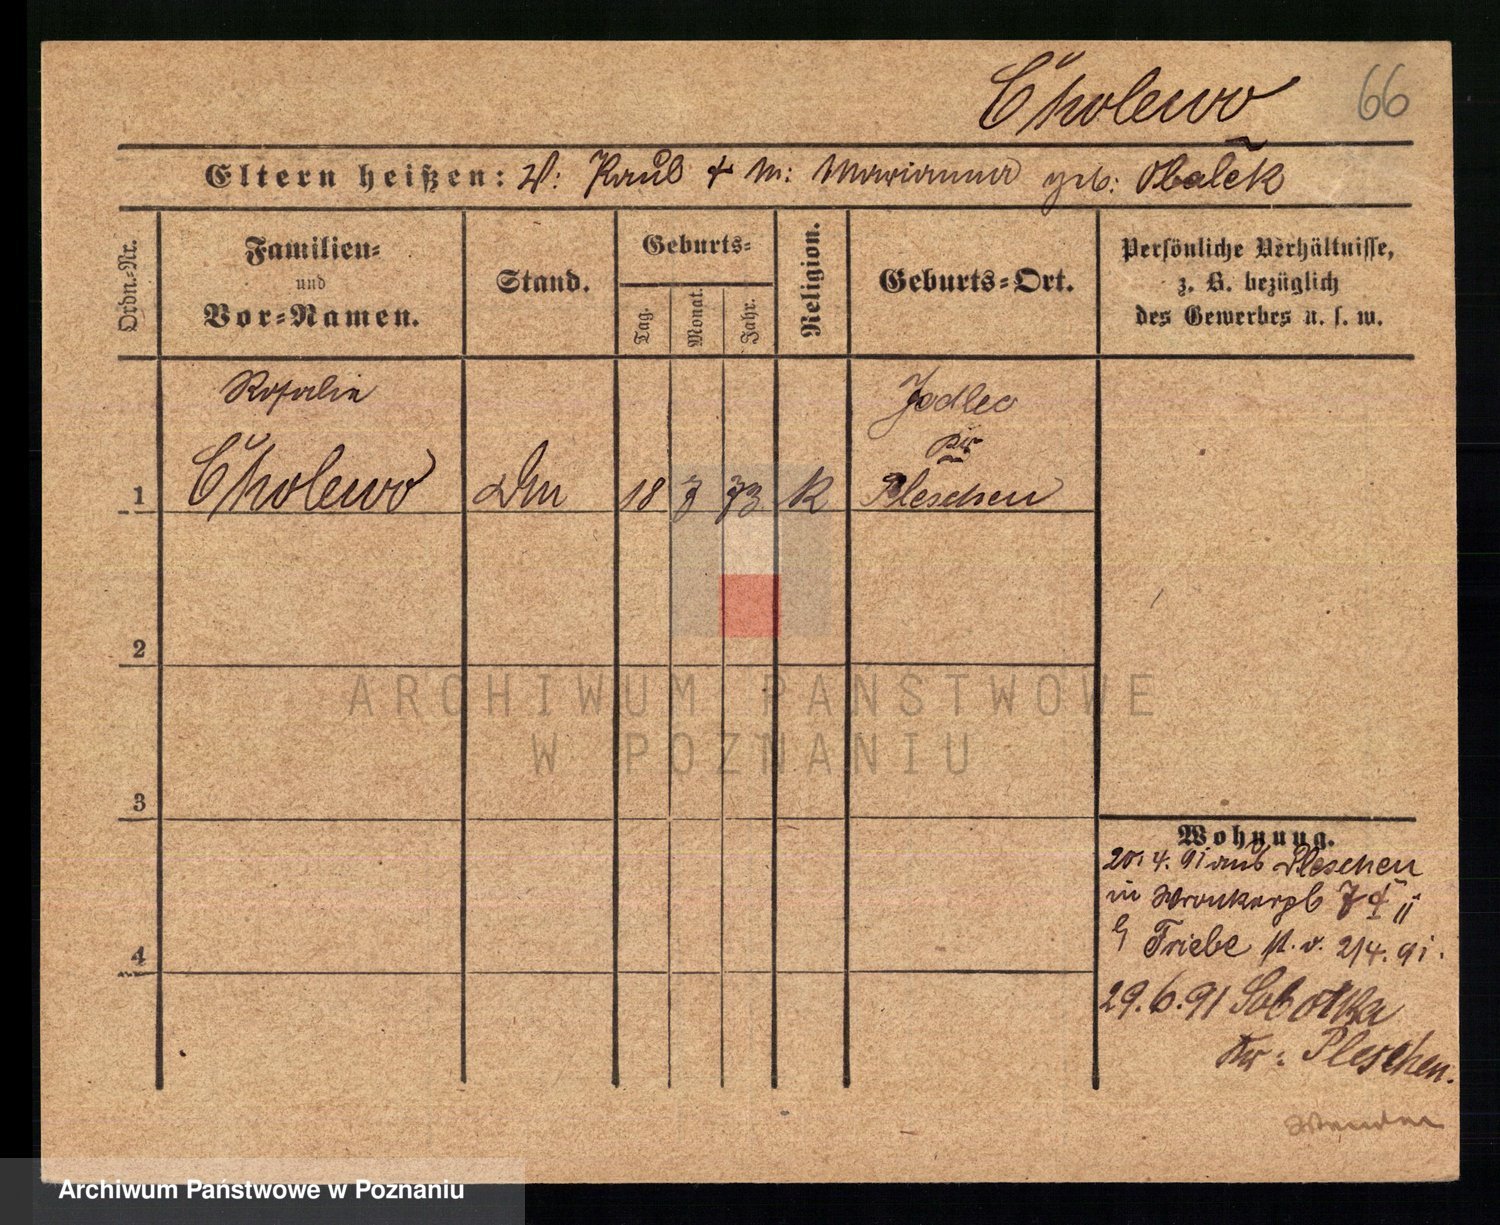 Cholewo 66
Eltern heißen: V: Paul + M: Marianna geb: Obalek
Ordn.-Nr.
Familien- und Vor-Namen.
Stand.
Geburts-
Tag. Monat. Jahr.
Religion.
Geburts-Ort.
Persönliche Verhältnisse,
z. B. bezüglich
des Gewerbes u. s. w.
Rosalie Jodlec
Kr
1 Cholewo Dm 18 7 73 K Pleschen
2
ARCHIWUM PAŃSTWOWE
W POZNANIU
3
Wohnung.
20.4.91 aus Pleschen
in Wronkerpl 7 II
Triebe 21/4.91.
4
29.6.91 Sobotka
Kr: Pleschen.
Wenden
Archiwum Państwowe w Poznaniu